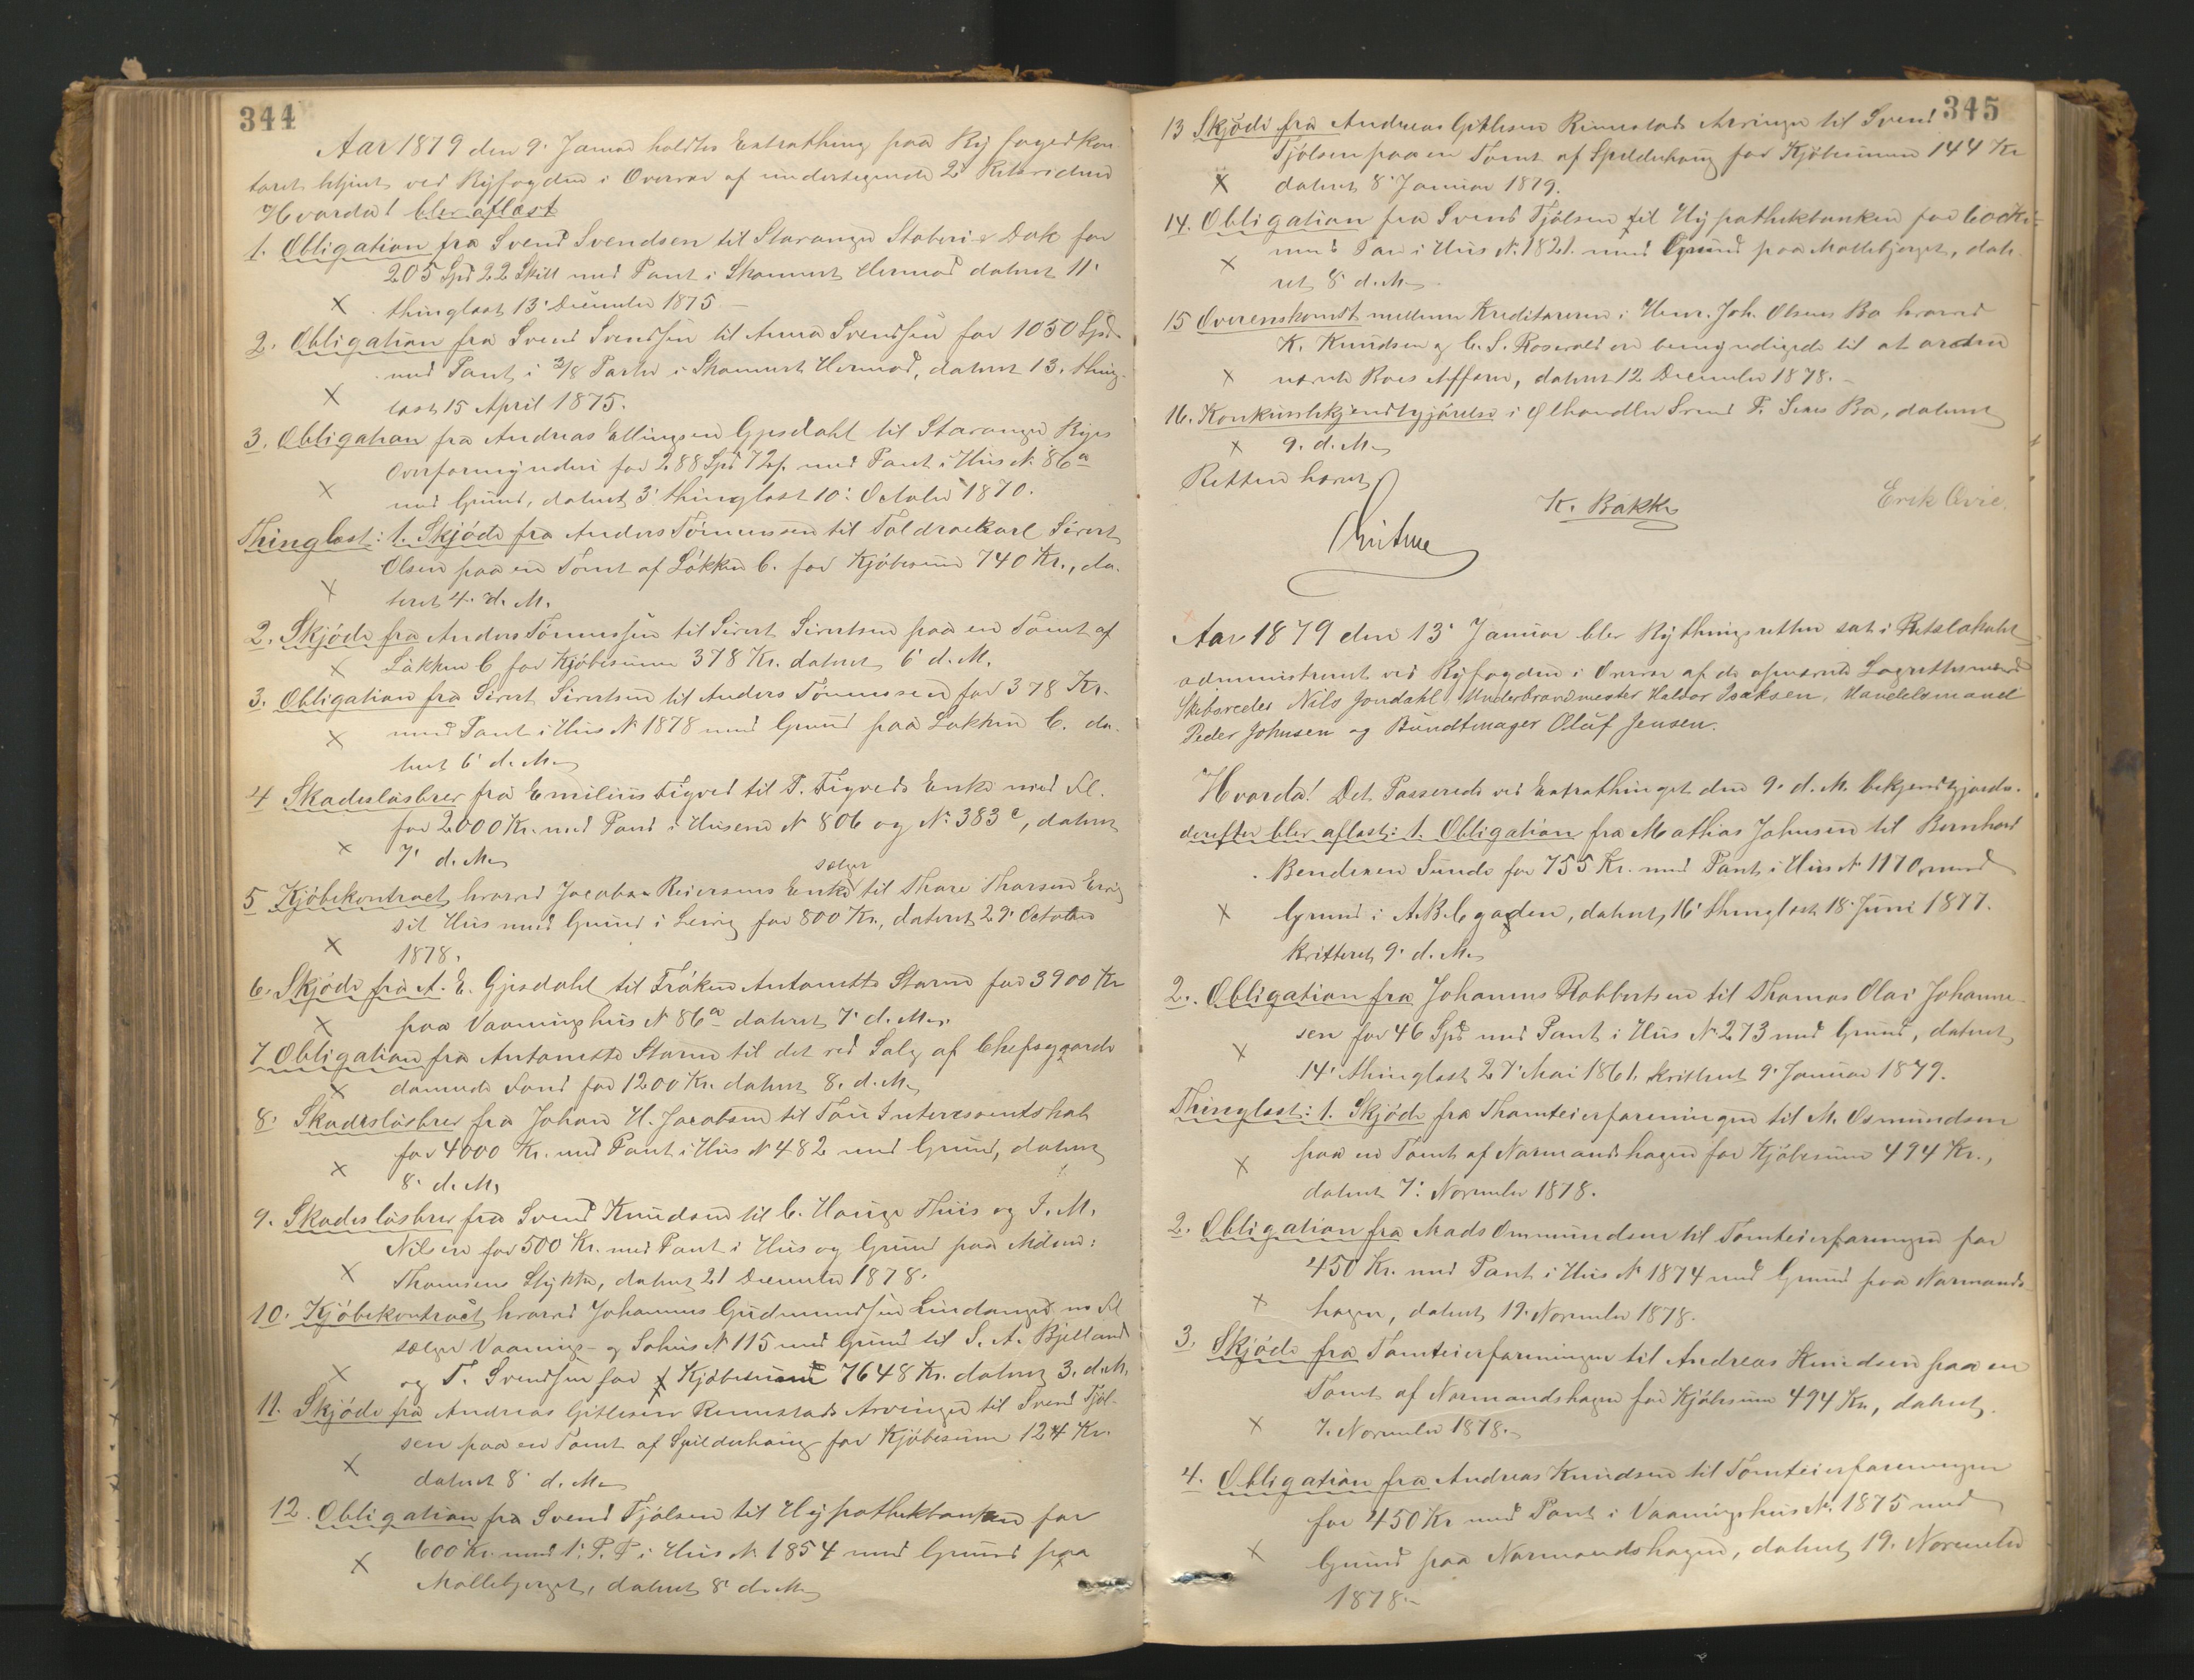 344
Aar 1879 den 9' Januar holdtes Extrathing paa Byfogedkon
toret betjent ved Byfogden i Overvær af undertegnede 2de Retsvidner
Hvorda! blev aflæst
1. Obligation fra Svend Svendsen til Stavanger Støberi & Dok for
205 Spd 22 Skill med Pant i Skonnert Hermod dateret 11'
X thinglæst 13' December 1875.-
2. Obligation fra Svend Svendsen til Anna Svendsen for 1050 Spd
med Pant i 3/8 Parter i Skonnert Hermod, dateret 13. thing-
X læst 15 April 1875.
3. Obligation fra Andreas Ellingsen Gjesdahl til Stavanger Byes
Overformynderi for 288 Spd 72 s. med Pant i Hus N. 86a
X med Grund, dateret 3' thinglæst 10' October 1870.
Thinglæst: 1. Skjøde fra Anders Tønnessen til Toldroerkarl Sivert
Olsen paa en Tomt af Løkken C. for Kjøbesum 740 Kr., da-
X teret 4. d. M.
2. Skjøde fra Anders Tønnessen til Sivert Sivertsen paa en Tomt af
X Løkken C for Kjøbesum 378 Kr. dateret 6' d. M.
3. Obligation fra Sivert Sivertsen til Anders Tønnessen for 378 Kr.
X med Pant i Hus N. 1878 med Grund paa Løkken C. da-
teret 6' d. M.
4 Skadesløsbrev fra Emilius Figved til T. Figveds Enke med Fl.
for 2000 Kr. med Pant i Husene N 806 og N. 383c, dateret
X 7' d. M.
sælger
5 Kjøbekontract hvorved Jacob Reiersens Enke til Thore Thorsen
sit Hus med Grund i for 800 Kr., dateret 29' October
X 1878.
6. Skjøde fra A. E. Gjesdahl til Frøken Antonette Storm for 3900 Kr
X paa Vaaningshus N 86a dateret 7' d. M.
7 Obligation fra Antonette Storm til det ved Salg af Chefsgaarde
X dannede Fond for 1200 Kr. dateret 8. d. M.
8' Skadesløsbrev fra Johan H. Jacobsen til Tou Interessentskab
for 4000 Kr. med Pant i Hus N 482 med Grund, dateret
X 8' d. M.
9. Skadesløsbrev fra Svend Knudsen til C. Hauge Thiis og I. M.
Nilsen for 500 Kr. med Pant i Hus og Grund paa
X Thomsens Stykke, dateret 21 December 1878.
10. Kjøbekontract hvorved Johannes Gudmundsen Lindanger m Fl
sælger Vaanings- og Søhus N 115 med Grund til S. A. Bjelland
X og T. Svendsen for Kjøbesum 7648 Kr. dateret 3. d. M.
11. Skjøde fra Andreas Gitlesen Rennestads Arvinger til Svend Tjøl-
sen paa en Tomt af Spilderhaug for Kjøbesum 124 Kr.
X dateret 8' d. M.
12. Obligation fra Svend Tjølsen til Hypothekbanken for
600 Kr. med 1' P. P. i Hus N. 1854 med Grund paa
X Møllebjerget, dateret 8' d. M.
345
13 Skjøde fra Andreas Gitlesen Rennestads Arvinger til Svend
Tjølsen paa en Tomt af Spilderhaug for Kjøbesum 144 Kr
X dateret 8' Januar 1879.
14. Obligation fra Svend Tjølsen til Hypothekbanken for 600 Kr
med Pan i Hus N. 1821. med Grund paa Møllebjerget, date-
X ret 8' d. M.
15 Overenskomst mellem Kreditorerne i Henr. Joh. Olsens Bo hvorved
K. Knudsen og C. S. Rosevold ere bemyndigede til at ordne
X nævnte Boes Affære, dateret 12 December 1878.-
16. Konkursbekjendtgjørelse i Ølhandler Svend T. Bo, dateret
X 9. d. M.
Retten hævet
K. Bakke
Erik Ovie.
Aar 1879 den 13' Januar blev Bythingsretten sat i Retslokalet
administreret ved Byfogden i Overvær af de opnævnte Lagrettesmænd
Skibsreder Nils Jondahl, Underbrandmester Halvor Isaksen, Handelsmand
Peder Johnsen og Bundtmager Oluf Jensen.
Hvorda! Det Passerede ved Extrathinget den 9. d. M. bekjendtgjordes.
derefter blev aflæst: 1. Obligation fra Mathias Johnsen til Bernhard
Bendixen Sunde for 755 Kr. med Pant i Hus N 1170 med
X Grund i A. B. C gaden, dateret 16' thinglæst 18' Juni 1877.
kvitteret 9' d. M.
2. Obligation fra Johannes Robbertsen til Thomas Olai Johanne-
sen for 46 Spd med Pant i Hus N. 273 med Grund, dateret
X 14' thinglæst 27' Mai 1861. kvitteret 9' Januar 1879.
Thinglæst: 1. Skjøde fra Thomteierforeningen til M. Osmundsen
paa en Tomt af Normandshagen for Kjøbesum 494 Kr.,
X dateret 7' November 1878.
2. Obligation fra Mads Ommundsen til Tomteierforeningen for
450 Kr. med Pant i Hus N. 1874 med Grund paa Normands-
X hagen, dateret 19. November 1878.
3. Skjøde fra Tomteierforeningen til Andreas Knudsen paa en
Tomt af Normandshagen for Kjøbesum 494 Kr, dateret
X 7. November 1878.-
4. Obligation fra Andreas Knudsen til Tomteierforeningen
for 450 Kr med Pant i Vaaningshus N. 1875 med
X Grund paa Normandshagen, dateret 19. November
1878.-